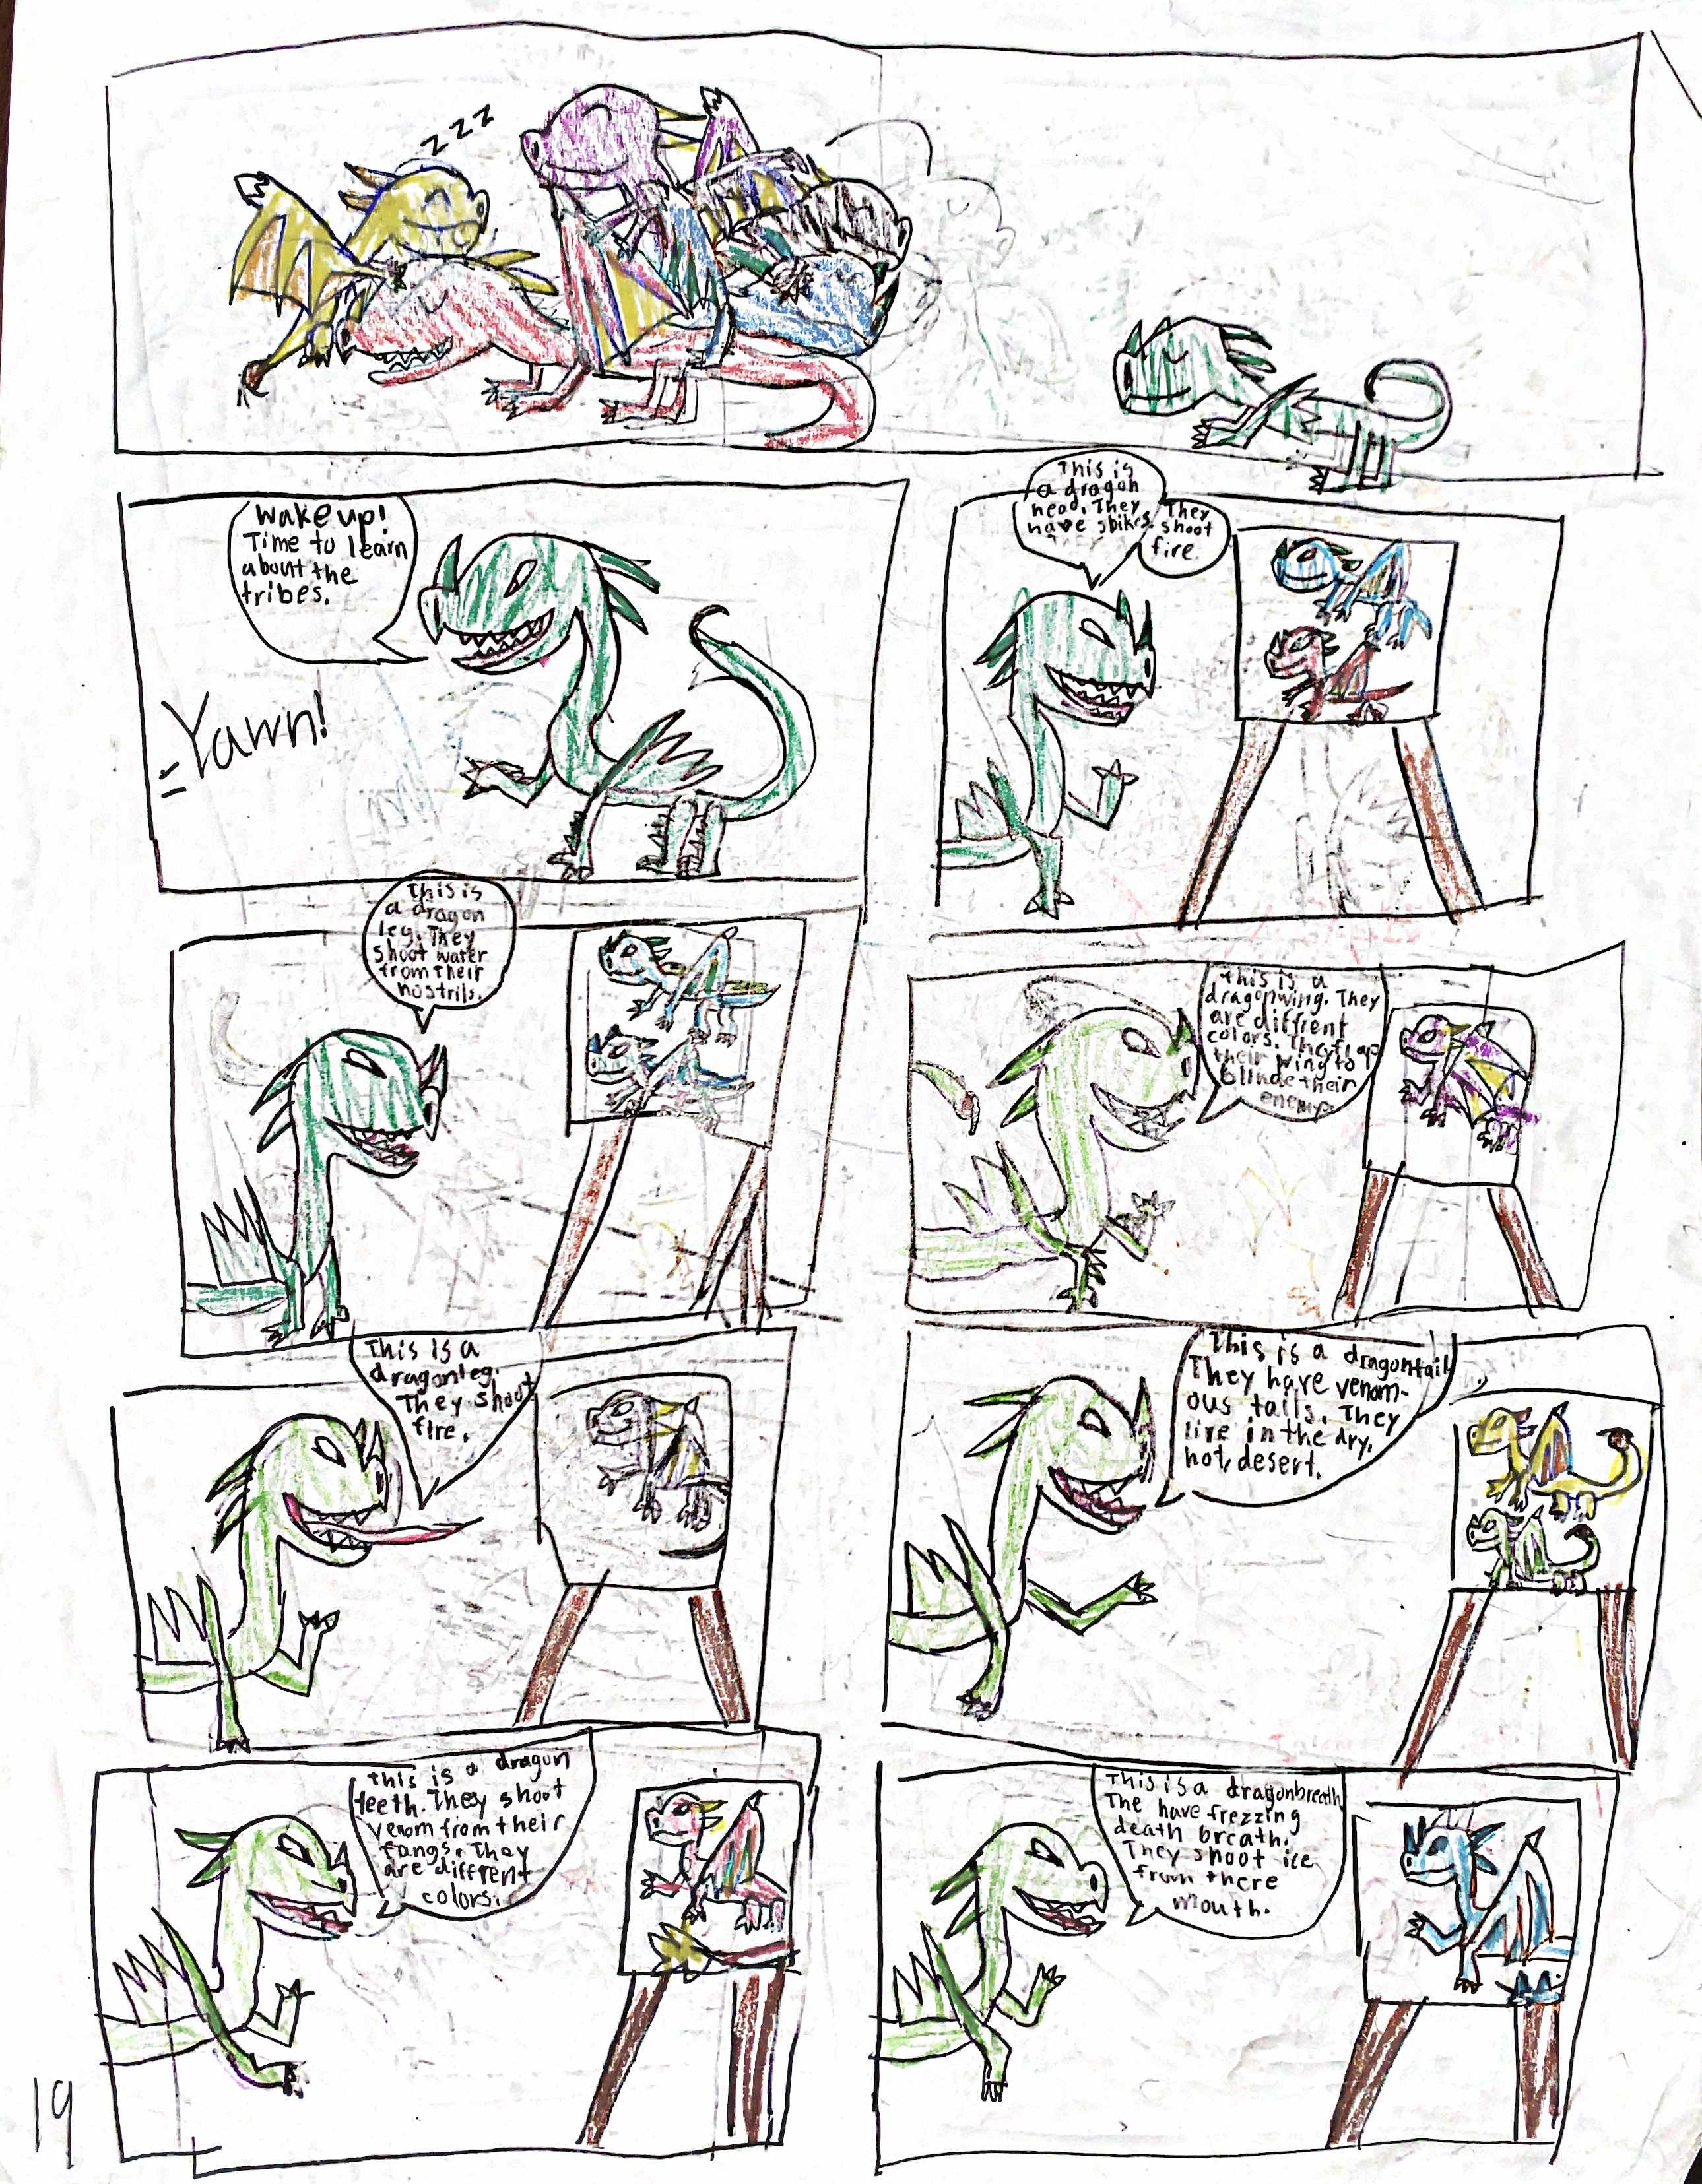 zzz
Wake up!
Time to learn
about the
tribes.
Yawn!
This is
a dragon
head. They
have spikes.
They
shoot
fire.
This is
a dragon
leg. They
shoot water
from their
nostrils.
this is a
dragonwing. They
are diffrent
colors. They flap
their wing to
blinde their
enemy.
This is a
dragonleg.
They shoot
fire.
This is a dragontail
They have venom-
ous tails. They
live in the dry,
hot, desert.
this is a dragon
teeth. They shoot
venom from their
fangs. They
are diffrent
colors.
This is a dragonbreath
The have frezzing
death breath.
They shoot ice
from there
mouth.
19